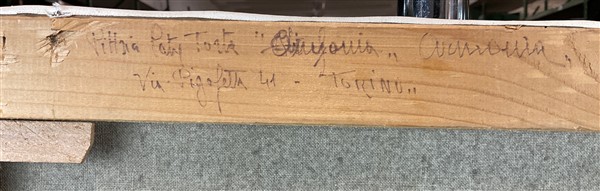 Vittoria Paty Torta "Sinfonia„ Armonia„
Via Pigafetta 41 - "TORINO„